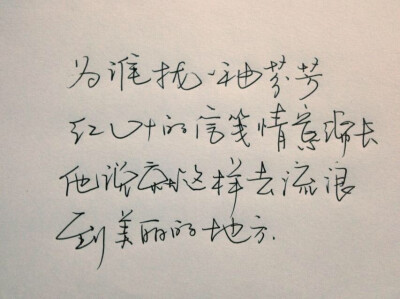 为谁拢一袖芬芳
红叶的信笺情意绵长
他说就这样去流浪
到美丽的地方.